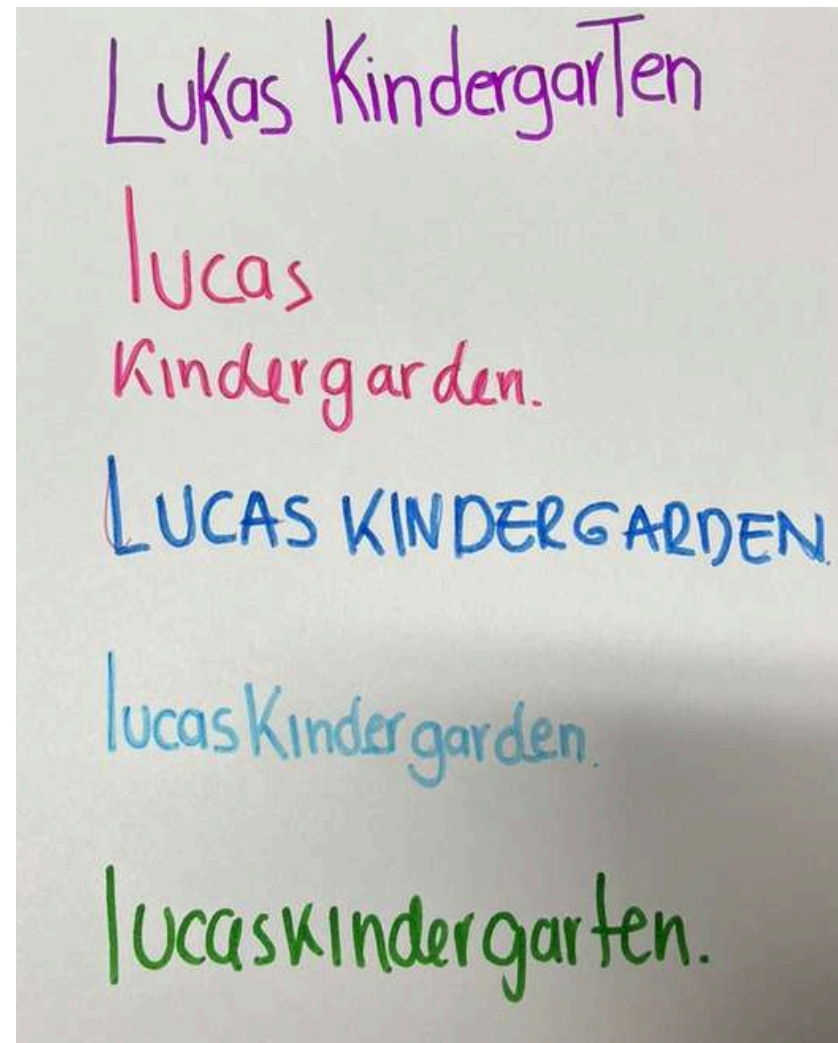 Lukas Kindergarten
lucas
Kindergarden.
LUCAS KINDERGARDEN.
lucasKindergarden.
lucaskindergarten.